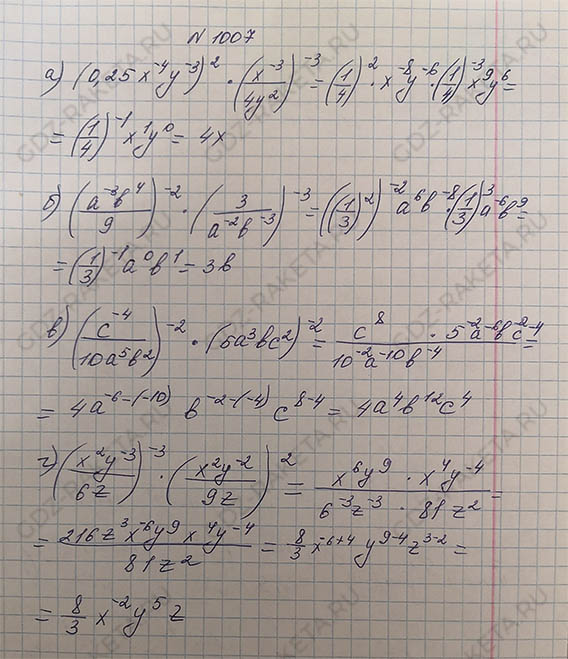 N 1007
а) (0,25 x⁻⁴y⁻³)² · (x⁻³/4y²)⁻³ = (1/4)² · x⁻⁸y⁻⁶ · (1/4)⁻³ x⁹y⁶ =
= (1/4)⁻¹ x¹y⁰ = 4x
б) (a⁻³b⁴/9)⁻² · (3/a⁻²b⁻³)⁻³ = ((1/3)²)⁻² a⁶b⁻⁸ · (1/3)³ a⁻⁶b⁹ =
= (1/3)⁻¹ a⁰b¹ = 3b
в) (c⁻⁴/10a⁵b²)⁻² · (5a³bc²)⁻² = c⁸ · 5⁻²a⁻⁶b⁻²c⁻⁴/10⁻²a⁻¹⁰b⁻⁴ =
= 4a⁻⁶⁻⁽⁻¹⁰⁾ b⁻²⁻⁽⁻⁴⁾ c⁸⁻⁴ = 4a⁴b¹²c⁴
г) (x²y⁻³/6z)⁻³ · (x²y⁻²/9z)² = x⁶y⁹ · x⁴y⁻⁴/6⁻³z⁻³ · 81z² =
= 216z³x⁻⁶y⁹x⁴y⁻⁴/81z² = 8/3 x⁻⁶⁺⁴ y⁹⁻⁴ z³⁻² =
= 8/3 x⁻²y⁵z
GDZ-RAKETA.RU